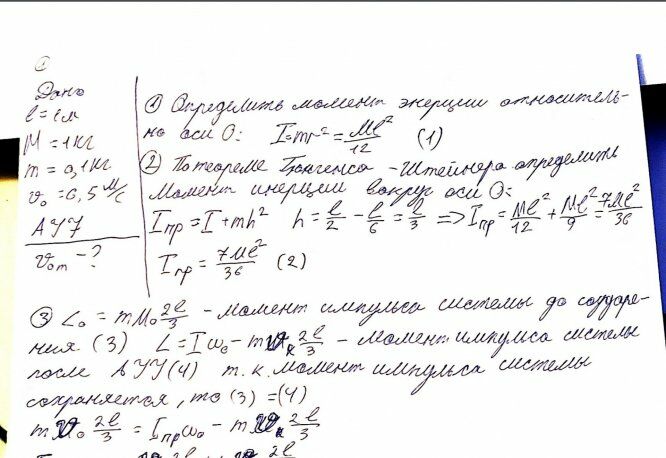 ①
Дано
l = 1 м
M = 1 кг
m = 0,1 кг
υ₀ = 0,5 м/с
АУУ
υ₀m - ?
① Определить момент энерции относитель-
но оси О: I = mr² = Ml²/12 (1)
② По теореме Гюгенса - Штейнера определить
момент инерции вокруг оси О:
Iпр = I + mh² h = l/2 - l/6 = l/3 => Iпр = Ml²/12 + Ml²/9 = 7Ml²/36
Iпр = 7Ml²/36 (2)
③ L₀ = mυ₀ 2l/3 - момент импульса системы до соударе-
ния (3) L = Iω₀ - mυк 2l/3 - момент импулса системы
после АУУ (4) т.к. момент импульса системы
сохраняется, то (3) = (4)
mυ₀ 2l/3 = Iпрω₀ - mυк 2l/3